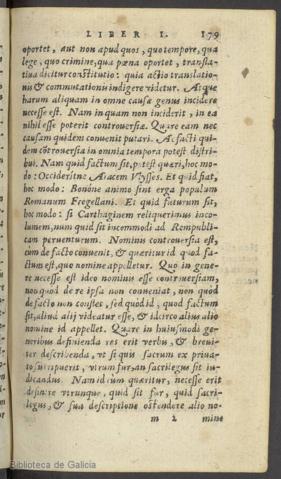 LIBER I. 179
oportet, aut non apud quos, quo tempore, qua
lege, quo crimine, qua pœna oportet, transla-
tiua dicitur constitutio: quia actio translatio-
nis & commutationis indigere videtur. Atque
harum aliquam in omne causæ genus incidere
necesse est. Nam in quam non inciderit, in ea
nihil esse poterit controuersiæ. Quare eam nec
causam quidem conuenit putari. Ac facti qui-
dem cōtrouersia in omnia tempora potest distri-
bui. Nam quid factum sit, potest quæri, hoc mo-
do: Occideritne Aiacem Vlysses. Et quid fiat,
hoc modo: Bonóne animo sint erga populum
Romanum Fregellani. Et quid futurum sit,
hoc modo: si Carthaginem reliquerimus inco-
lumem, num quid sit incommodi ad Rempubli-
cam peruenturum. Nominis controuersia est,
cùm de facto conuenit, & quæritur id quod fa-
ctum est, quo nomine appelletur. Quo in gene-
re necesse est ideo nominis esse controuersiam,
non quòd de re ipsa non conueniat, non quòd
de facto non constet, sed quòd id, quod factum
sit, aliud alij videatur esse, & idcirco alius alio
nomine id appellet. Quare in huiusmodi ge-
neribus definienda res erit verbis, & breui-
ter describenda, vt si quis sacrum ex priua-
to surripuerit, vtrum fur, an sacrilegus sit iu-
dicandus. Nam id cum quæritur, necesse erit
definire vtrunque, quid sit fur, quid sacri-
legus, & sua descriptione ostendere alio no-
m 2 mine
Biblioteca de Galicia